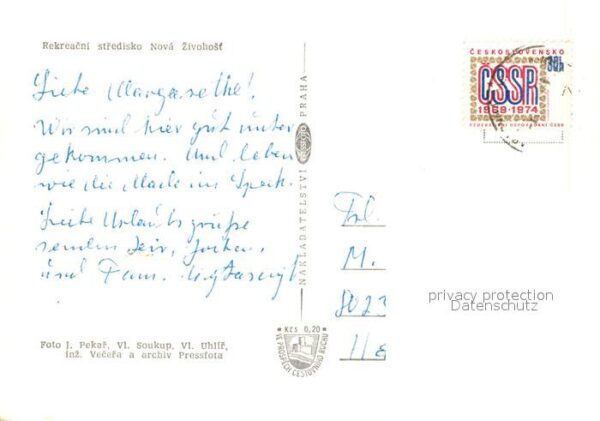 Rekreační středisko Nová Živohošť
Liebe Margarethe!
Wir sind hier gut unter
gekommen. Und leben
wie die Made im Speck.
Liebe Urlaubsgrüße
senden Dir,
und Fam.
Foto J. Pekař, Vl. Soukup, Vl. Uhlíř,
inž. Večeřa a archiv Pressfota
NAKLADATELSTVÍ PRAHA
Kčs 0,20
VE PROSPĚCH CESTOVNÍHO RUCHU
ČESKOSLOVENSKO
30h
ČSSR
1969-1974
Frl.
M.
8023
privacy protection
Datenschutz